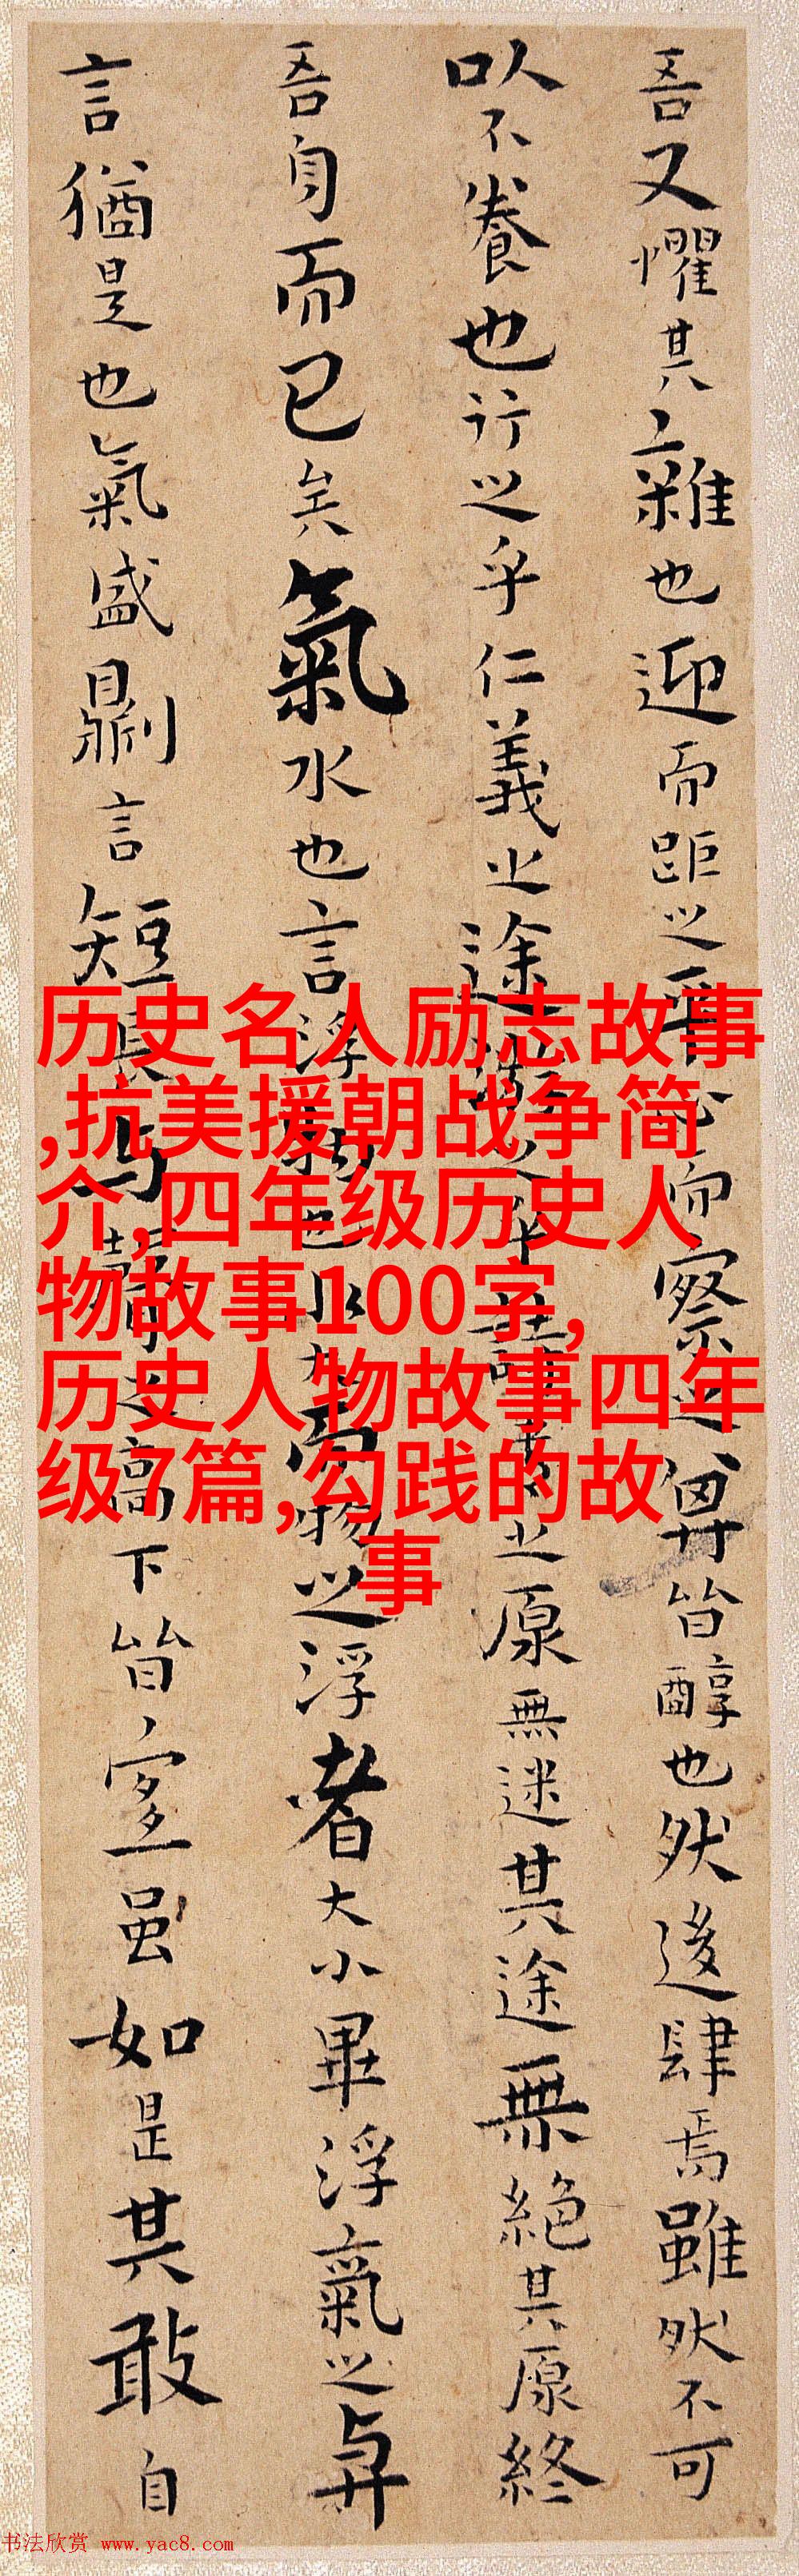 吾又懼其雜也迎而距之平心而察之皆醇也然後肆焉雖然不可
以不養也行之乎仁義之途遊之乎詩書之原無迷其途無絕其原終
吾身而已矣氣水也言浮物也水大而物之浮者大小畢浮氣之與
言猶是也氣盛則言短長與聲之高下皆宜虽如是其敢自
历史名人励志故事
,抗美援朝战争简
介,四年级历史人
物故事100字,
历史人物故事四年
级7篇,勾践的故
事
书法欣赏 www.yac8.com